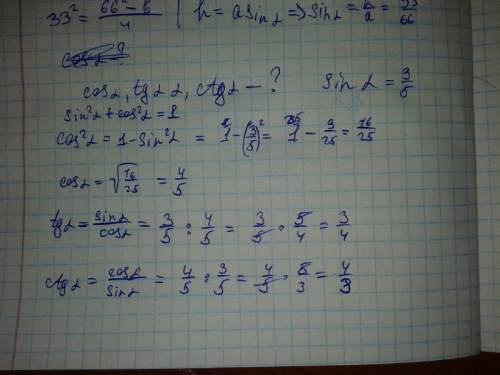 33² = (66² - b)/4 | h = a sin α => sin α = h/a = 33/66
cos α, tg α, ctg α - ? sin α = 3/5
sin²α + cos²α = 1
cos²α = 1 - sin²α = 1 - (3/5)² = 1 - 9/25 = 16/25
cos α = √(16/25) = 4/5
tg α = sin α/cos α = 3/5 : 4/5 = 3/5 · 5/4 = 3/4
ctg α = cos α/sin α = 4/5 : 3/5 = 4/5 · 5/3 = 4/3